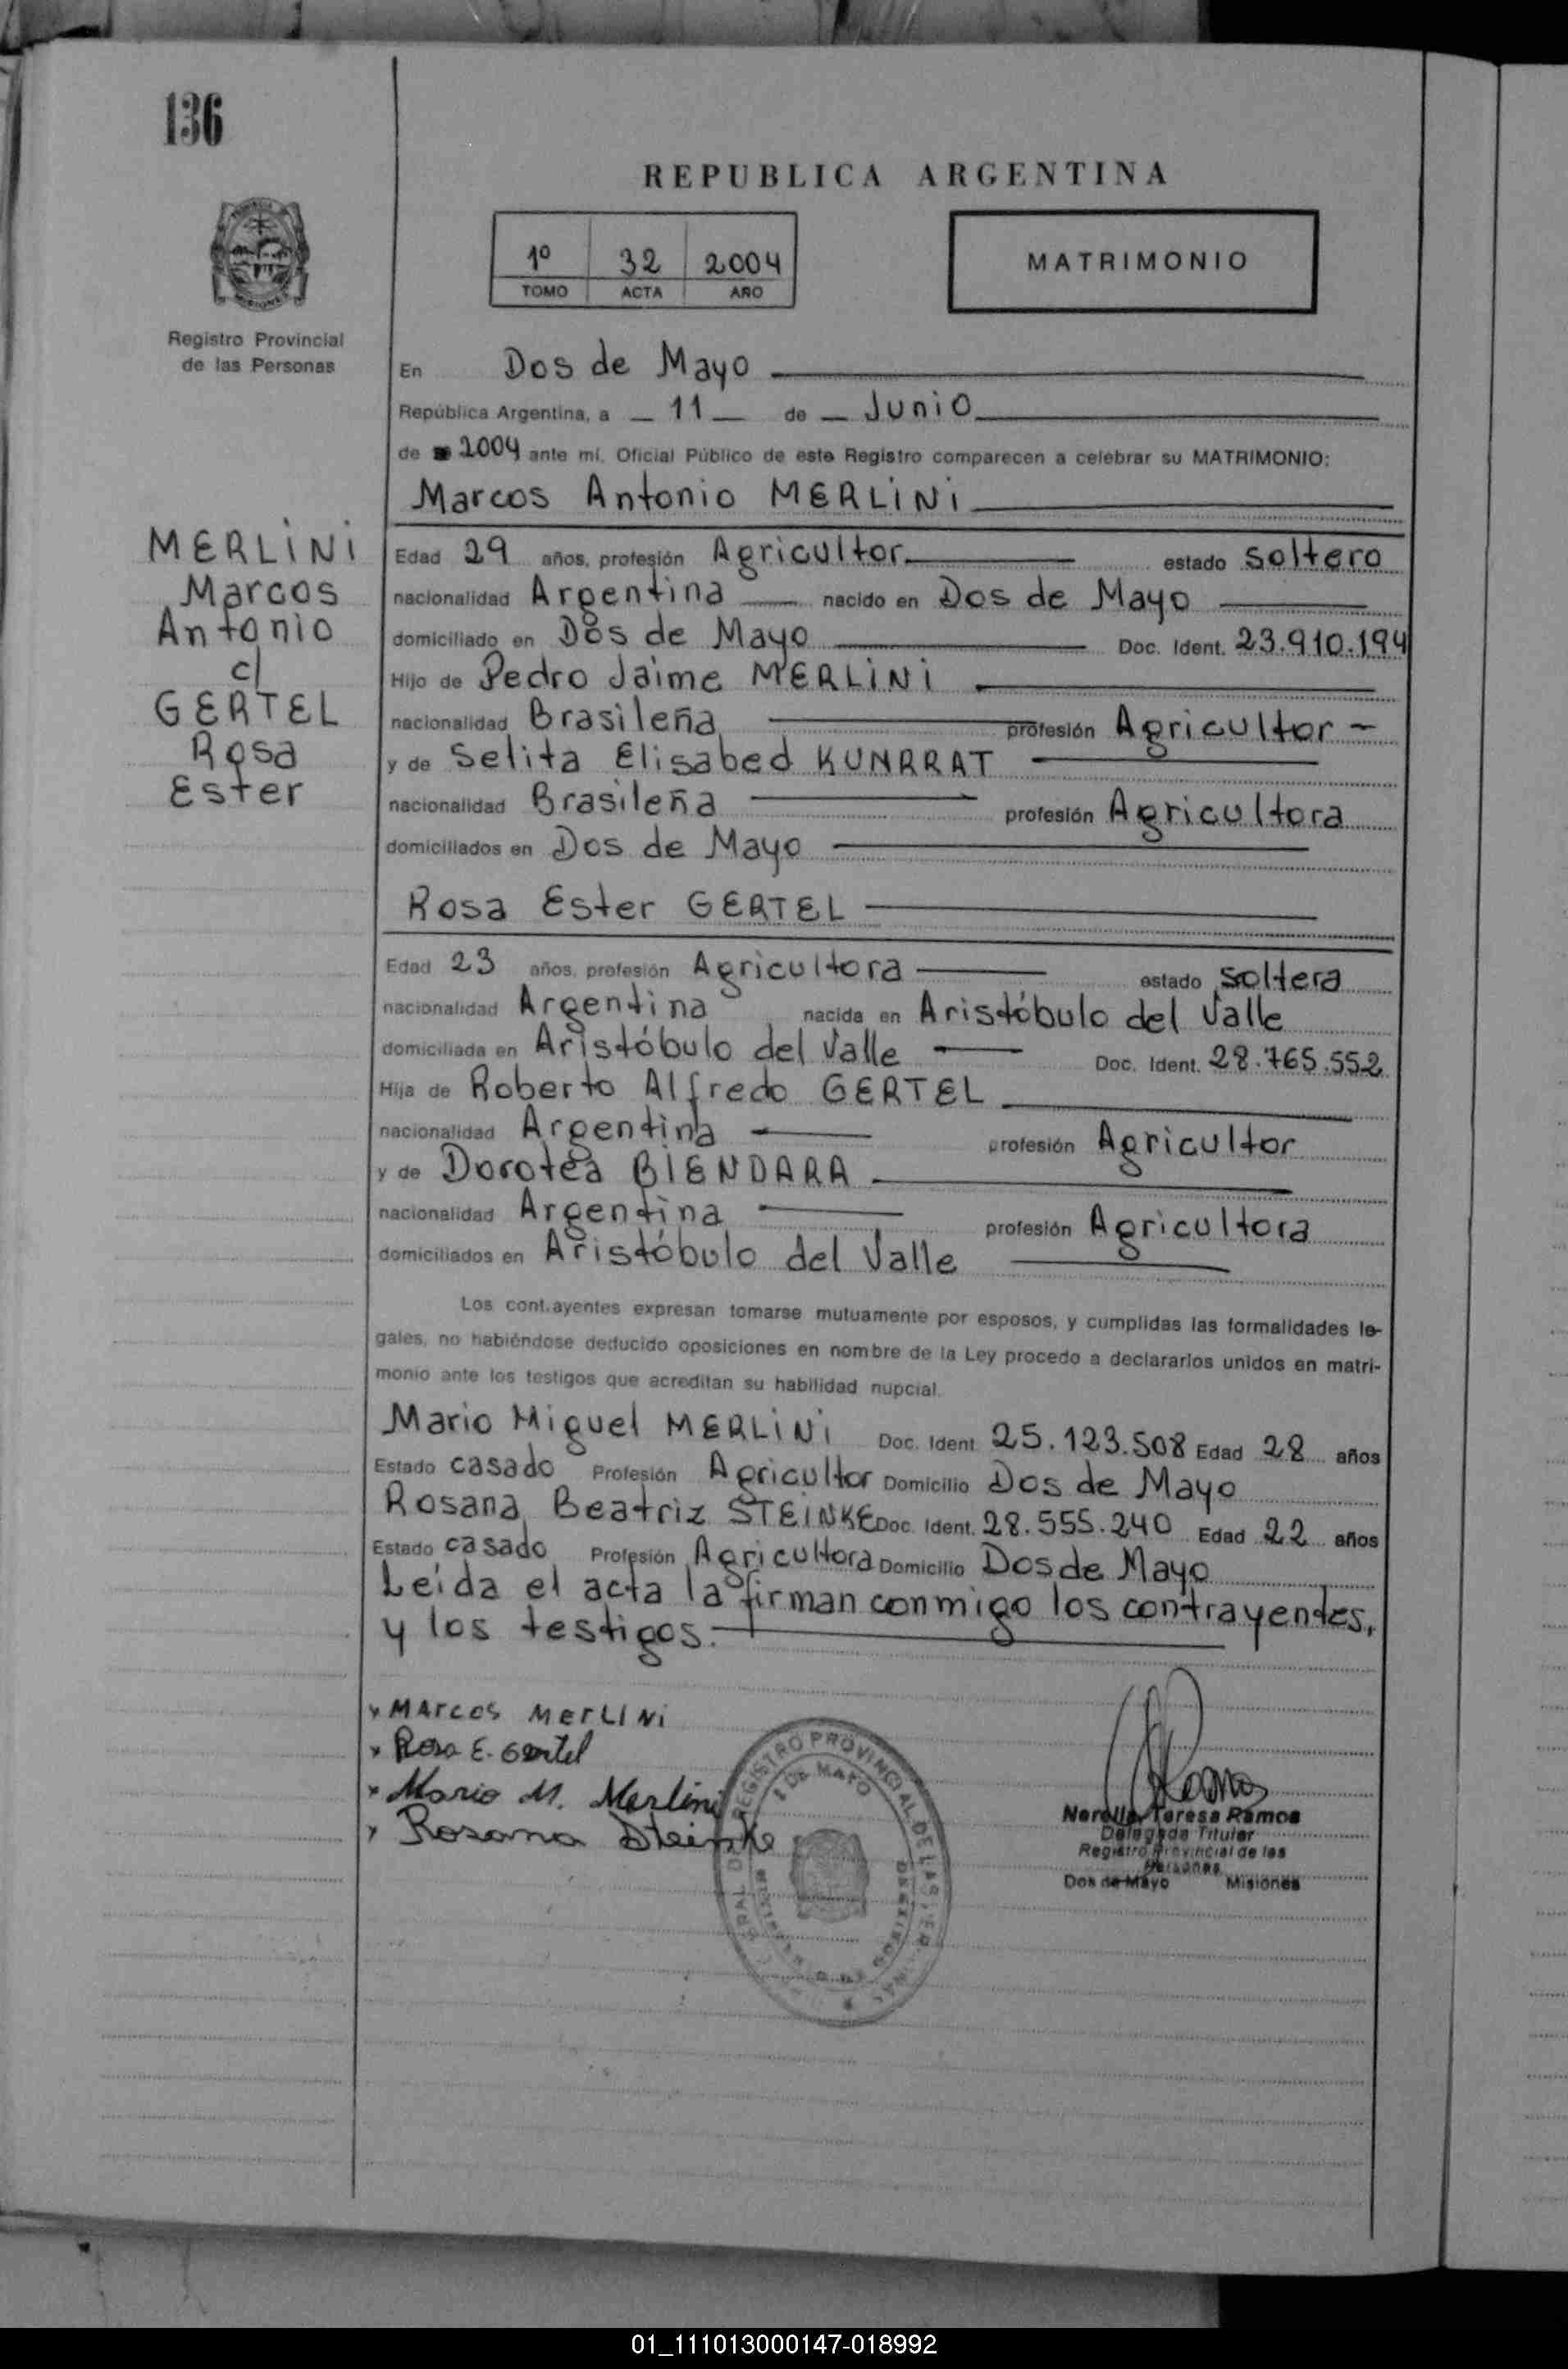 136
REPUBLICA ARGENTINA
1º 32 2004
TOMO ACTA AÑO
MATRIMONIO
Registro Provincial
de las Personas
En Dos de Mayo
República Argentina, a 11 de Junio
de 2004 ante mí, Oficial Público de este Registro comparecen a celebrar su MATRIMONIO:
Marcos Antonio MERLINI
MERLINI
Marcos
Antonio
c/
GERTEL
Rosa
Ester
Edad 29 años, profesión Agricultor estado soltero
nacionalidad Argentina nacido en Dos de Mayo
domiciliado en Dos de Mayo Doc. Ident. 23.910.194
Hijo de Pedro Jaime MERLINI
nacionalidad Brasileña profesión Agricultor
y de Selita Elisabed KUNRRAT
nacionalidad Brasileña profesión Agricultora
domiciliados en Dos de Mayo
Rosa Ester GERTEL
Edad 23 años, profesión Agricultora estado soltera
nacionalidad Argentina nacida en Aristóbulo del Valle
domiciliada en Aristóbulo del Valle Doc. Ident. 28.765.552
Hija de Roberto Alfredo GERTEL
nacionalidad Argentina profesión Agricultor
y de Dorotea BIENDARA
nacionalidad Argentina profesión Agricultora
domiciliados en Aristóbulo del Valle
Los contrayentes expresan tomarse mutuamente por esposos, y cumplidas las formalidades le-
gales, no habiéndose deducido oposiciones en nombre de la Ley procedo a declararlos unidos en matri-
monio ante los testigos que acreditan su habilidad nupcial.
Mario Miguel MERLINI Doc. Ident. 25.123.508 Edad 28 años
Estado casado Profesión Agricultor Domicilio Dos de Mayo
Rosana Beatriz STEINKE Doc. Ident. 28.555.240 Edad 22 años
Estado casado Profesión Agricultora Domicilio Dos de Mayo
Leída el acta la firman conmigo los contrayentes,
y los testigos.
x Marcos Merlini
x Rosa E. Gertel
x Mario M. Merlini
x Rosana Steinke
REGISTRO PROVINCIAL DE LAS
DE MAYO
Ramos
Teresa Ramos
Delegada Titular
Registro Provincial de las
Personas
Dos de Mayo Misiones
01_111013000147-018992